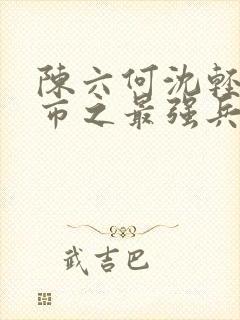 陳六何沈輕
市之最强兵
武吉巴